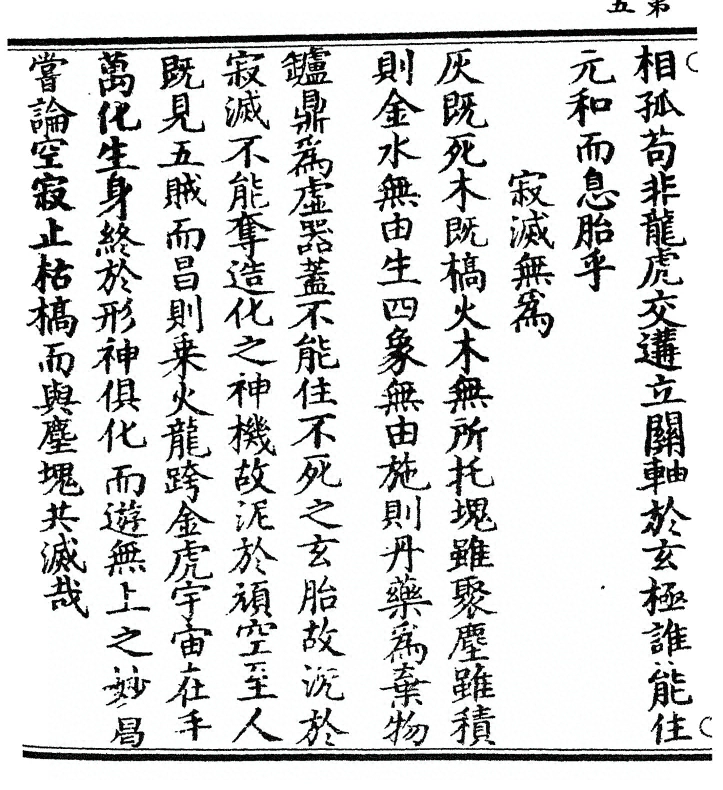 第五
相孤苟非龍虎交遘立關軸於玄極誰能住
元和而息胎乎
寂滅無爲
灰既死木既槁火木無所托塊雖聚塵雖積
則金水無由生四象無由施則丹藥爲棄物
鑪鼎爲虛器蓋不能住不死之玄胎故沉於
寂滅不能奪造化之神機故泥於頑空至人
既見五賊而昌則乗火龍跨金虎宇宙在手
萬化生身終於形神俱化而遊無上之妙曷
嘗論空寂止枯槁而與塵塊共滅哉